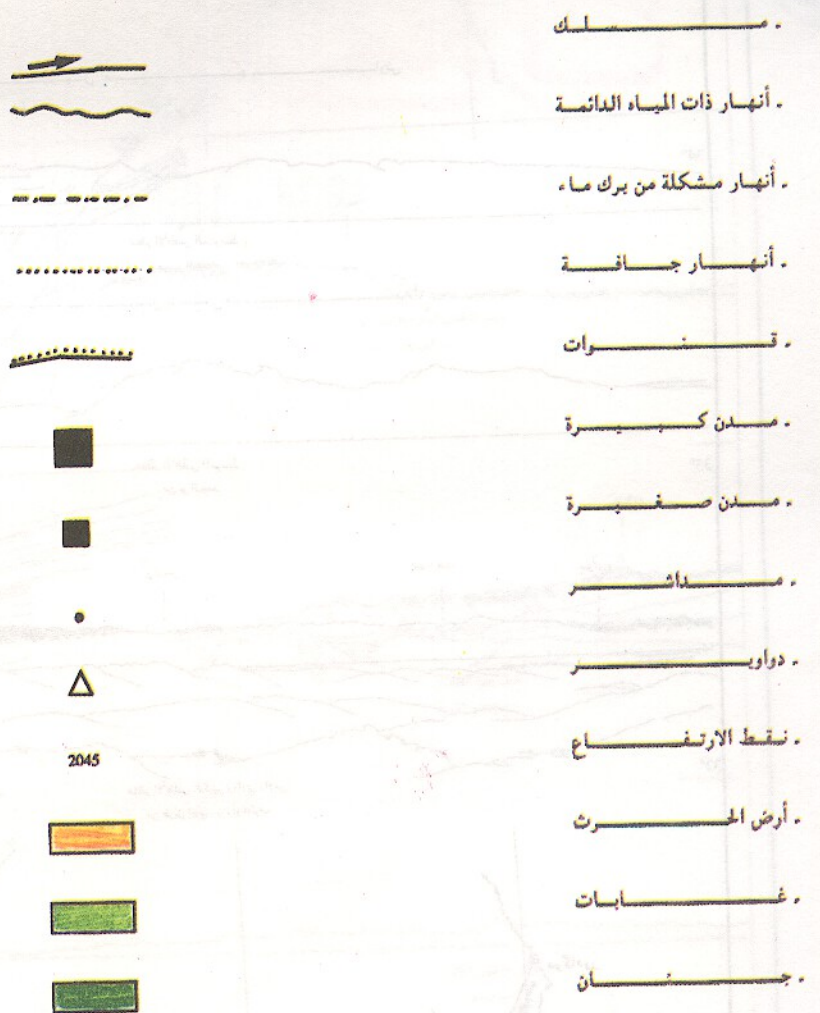 - مسلك
- أنهار ذات المياه الدائمة
- أنهار مشكلة من برك ماء
- أنهار جافة
- قنوات
- مدن كبيرة
- مدن صغيرة
- مداشر
- دواوير
- نقط الارتفاع
2045
- أرض الحرث
- غابات
- جنان